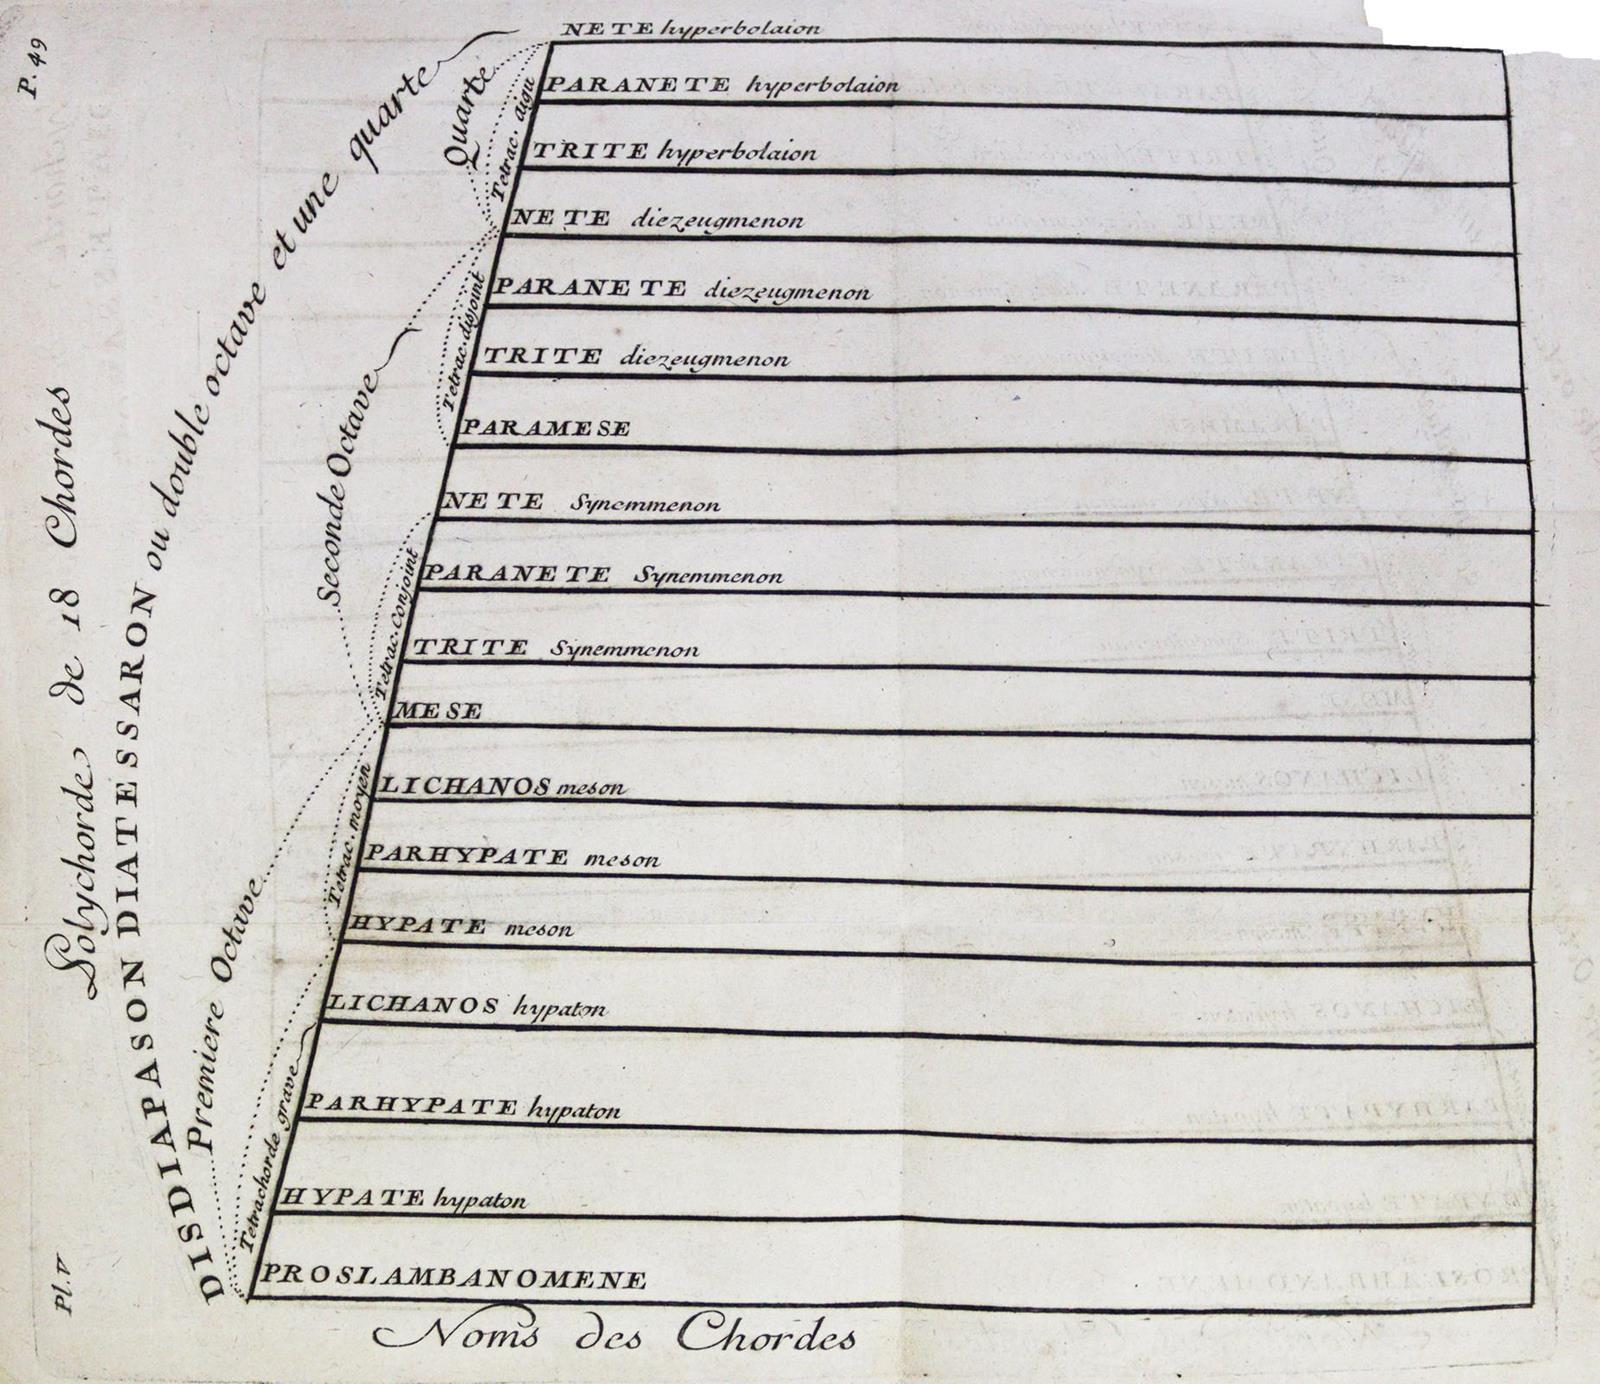 P. 49
Pl. V
Polychorde de 18 Chordes
DISDIAPASON DIATESSARON ou double octave et une quarte
Quarte
Seconde Octave
Premiere Octave
Tetrac. aigu
Tetrac. disjoint
Tetrac. conjoint
Tetrac. moyen
Tetrachorde grave
NETE hyperbolaion
PARANETE hyperbolaion
TRITE hyperbolaion
NETE diezeugmenon
PARANETE diezeugmenon
TRITE diezeugmenon
PARAMESE
NETE Synemmenon
PARANETE Synemmenon
TRITE Synemmenon
MESE
LICHANOS meson
PARHYPATE meson
HYPATE meson
LICHANOS hypaton
PARHYPATE hypaton
HYPATE hypaton
PROSLAMBANOMENE
Noms des Chordes